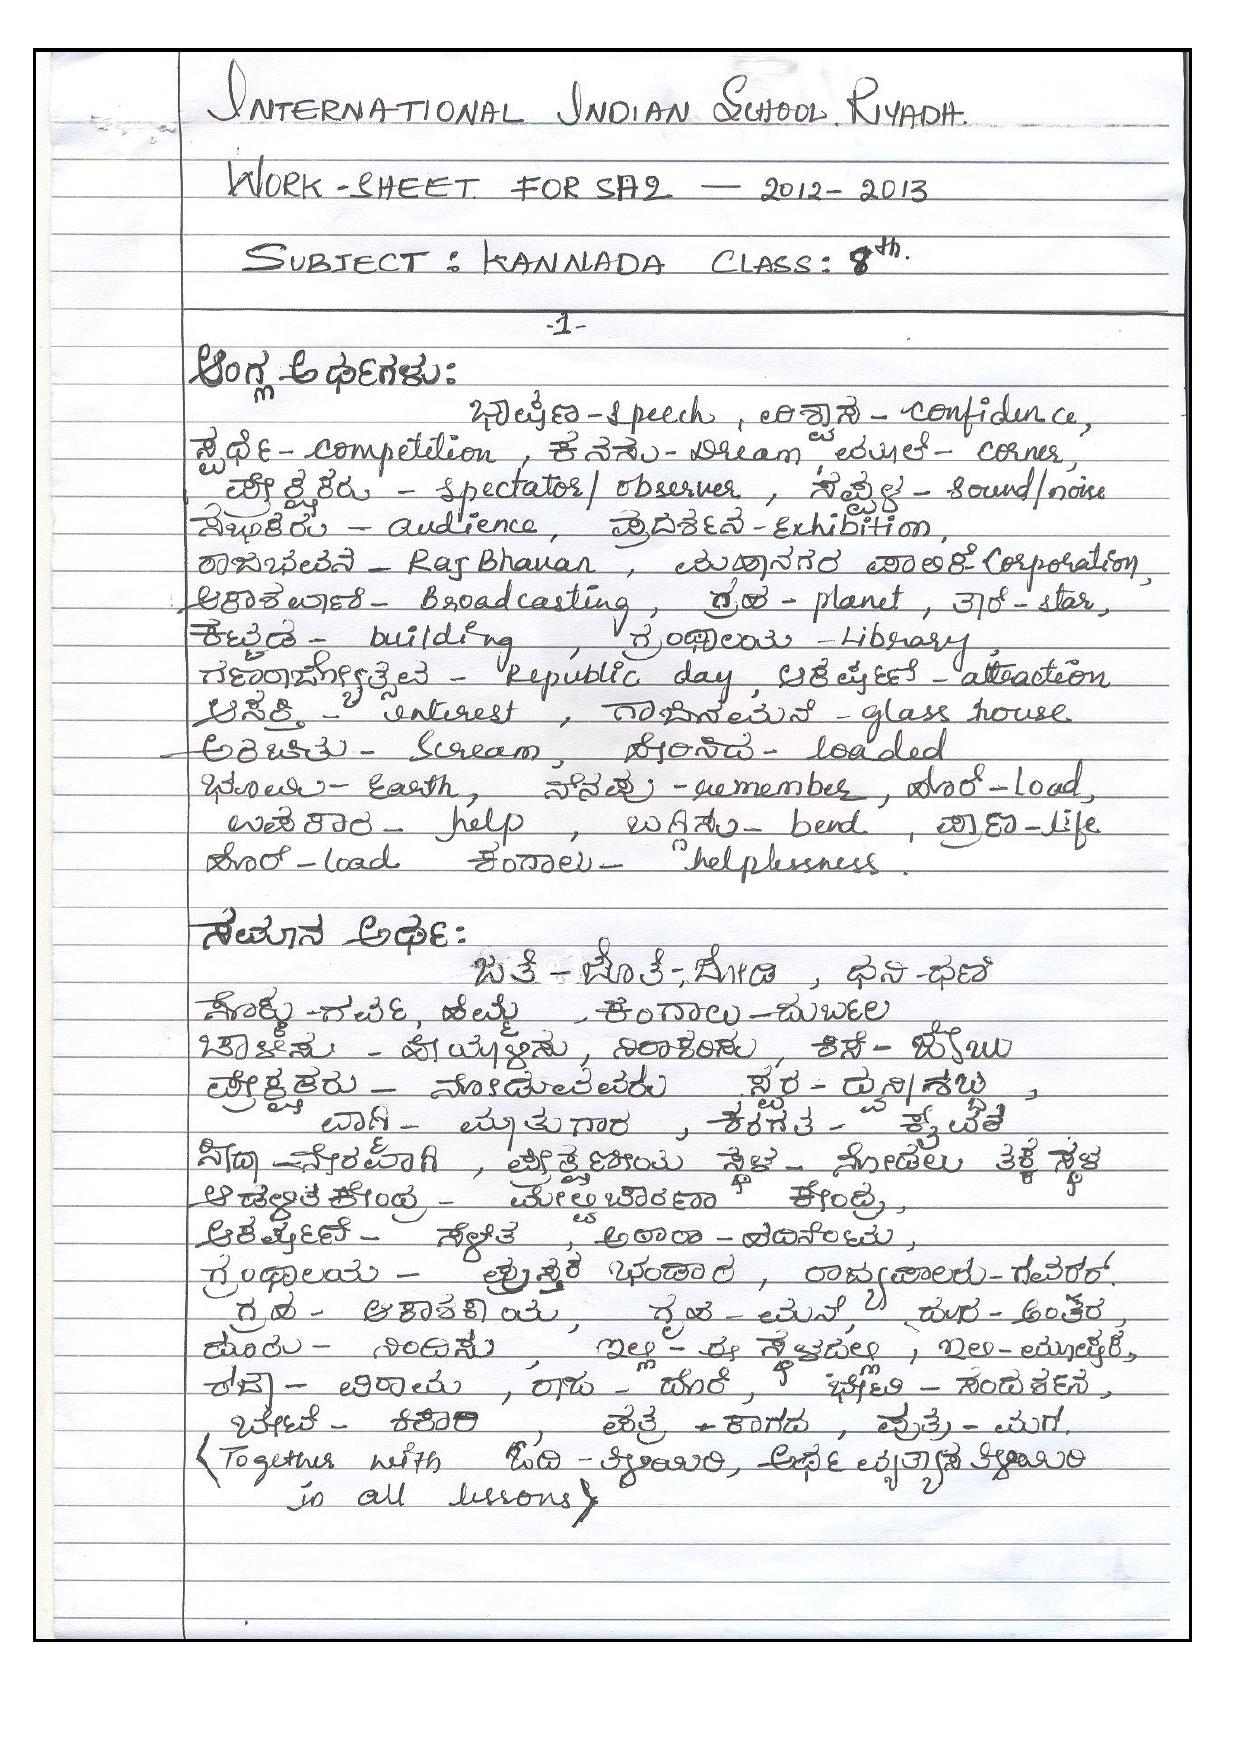 INTERNATIONAL INDIAN SCHOOL RIYADH.
WORK-SHEET FOR SA2 — 2012-2013
SUBJECT: KANNADA CLASS: 8th.
-1-
ಆಂಗ್ಲ ಅರ್ಥಗಳು:
ಭಾಷಣ - speech, - confidence,
ಸ್ಪರ್ಧೆ - competition, ಕನಸು - Dream, ಮೂಲೆ - corner,
ಪ್ರೇಕ್ಷಕರು - spectator/observer, ಸಪ್ಪಳ - sound/noise
ಸಭಿಕರು - audience, ಪ್ರದರ್ಶನ - Exhibition,
ರಾಜಭವನ - Raj Bhavan, ಮಹಾನಗರ ಪಾಲಿಕೆ - Corporation,
ಆಕಾಶವಾಣಿ - Broadcasting, ಗ್ರಹ - planet, ತಾರೆ - star,
ಕಟ್ಟಡ - building, ಗ್ರಂಥಾಲಯ - Library,
ಗಣರಾಜ್ಯೋತ್ಸವ - Republic day, ಆಕರ್ಷಣೆ - attraction
ಆಸಕ್ತಿ - interest, ಗಾಜಿನಮನೆ - glass house
ಅರಚಿತು - Scream, - loaded
ಭೂಮಿ - Earth, ನೆನಪು - remember, ಹೊರೆ - load,
ಉಪಕಾರ - help, ಬಗ್ಗಿಸು - bend, ಪ್ರಾಣ - life
ಹೊರೆ - load ಕಂಗಾಲು - helplessness.
ಸಮಾನ ಅರ್ಥ:
ಜತೆ - ಜೊತೆ, ಜೋಡಿ, ಧನಿ - ಧಣಿ
ಸೊಕ್ಕು - ಗರ್ವ, ಹೆಮ್ಮೆ, ಕಂಗಾಲು - ದುರ್ಬಲ
- ಹೀಯಾಳಿಸು, ನಿರಾಕರಿಸು, ಕಿಸೆ - ಜೇಬು
ಪ್ರೇಕ್ಷಕರು - ನೋಡುವವರು ಸ್ವರ - ಧ್ವನಿ/ಶಬ್ದ,
ವಾಗ್ಮಿ - ಮಾತುಗಾರ, ಕರಗತ - ಕೈವಶ
ಸೀದಾ - ನೇರವಾಗಿ, ಪ್ರೇಕ್ಷಣೀಯ ಸ್ಥಳ - ನೋಡಲು ತಕ್ಕ ಸ್ಥಳ
ಆಡಳಿತ ಕೇಂದ್ರ - ಮೇಲ್ವಿಚಾರಣಾ ಕೇಂದ್ರ,
ಆಕರ್ಷಣೆ - ಸೆಳೆತ, ಅಠಾರಾ - ಹದಿನೆಂಟು,
ಗ್ರಂಥಾಲಯ - ಪುಸ್ತಕ ಭಂಡಾರ, ರಾಜ್ಯಪಾಲರು - ಗವರ್ನರ್.
ಗ್ರಹ - ಆಕಾಶಕಾಯ, ಗೃಹ - ಮನೆ, ದೂರ - ಅಂತರ,
ದೂರು - ನಿಂದಿಸು, ಇಲ್ಲಿ - ಈ ಸ್ಥಳದಲ್ಲಿ, ಇಲಿ - ಮೂಷಿಕ,
ರಜಾ - ವಿರಾಮ, ರಾಜ - ದೊರೆ, ಭೇಟಿ - ಸಂದರ್ಶನ,
ಬೇಟೆ - ಶಿಕಾರಿ, ಪತ್ರ - ಕಾಗದ, ಪುತ್ರ - ಮಗ.
(Together with ಓದಿ - ತಿಳಿಯಿರಿ, ಅರ್ಥ ವ್ಯತ್ಯಾಸ ತಿಳಿಯಿರಿ
in all lessons)